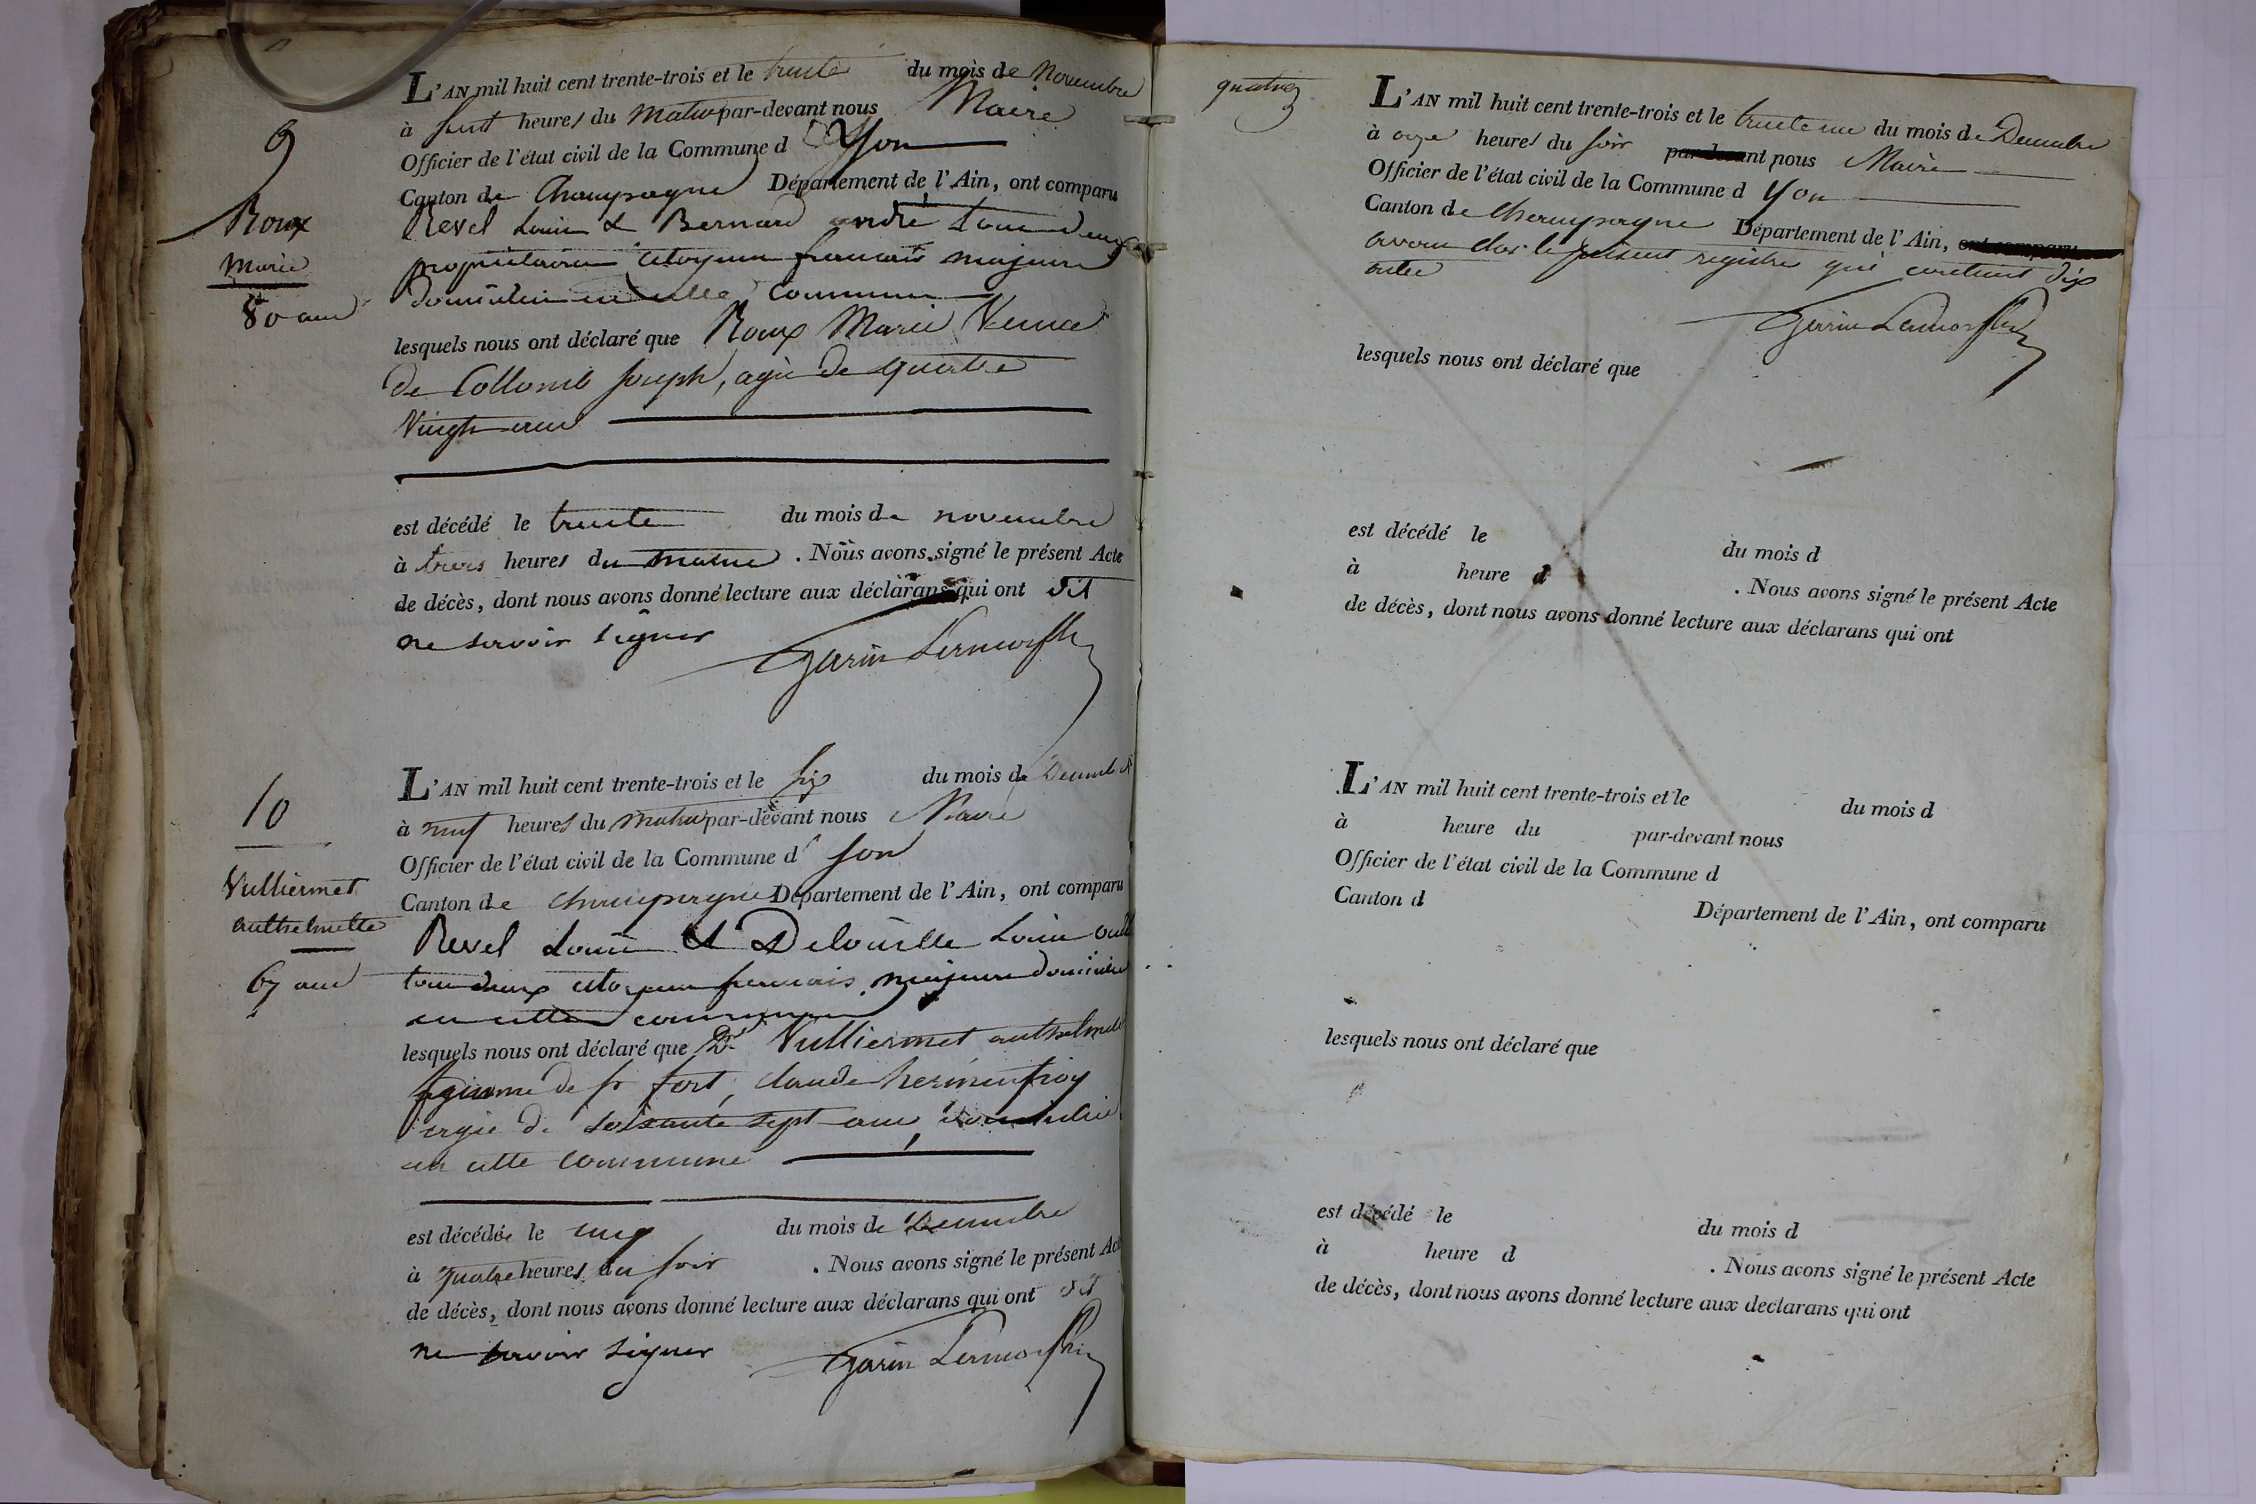 9
Roux
Marie
80 ans
L'AN mil huit cent trente-trois et le trente du mois de Novembre
à huit heures du matin par-devant nous Maire
Officier de l'état civil de la Commune d'Yon
Canton de Champagne Département de l'Ain, ont comparu
Revel Louis & Bernard andré tous deux
propriétaires citoyens français majeurs
domiciliés en cette commune
lesquels nous ont déclaré que Roux Marie Veuve
de Collomb Joseph, agée de quatre
Vingts ans
est décédé le trente du mois de novembre
à trois heures du matin . Nous avons signé le présent Acte
de décès, dont nous avons donné lecture aux déclarans qui ont dit
ne savoir signer
10
Vulliermet
anthelmette
67 ans
L'AN mil huit cent trente-trois et le six du mois de Decembre
à neuf heures du matin par-devant nous Maire
Officier de l'état civil de la Commune d' Yon
Canton de champagne Département de l'Ain, ont comparu
Revel Louis & Delouille Louis
tous deux citoyens français majeurs domiciliés
en cette commune
lesquels nous ont déclaré que De Vulliermet anthelmette
femme de sr fort, claude
agée de soixante sept ans, domiciliée
en cette commune
est décédée le cinq du mois de Decembre
à quatre heures du soir . Nous avons signé le présent Acte
de décès, dont nous avons donné lecture aux déclarans qui ont dit
ne savoir signer
Garin
quatre
L'AN mil huit cent trente-trois et le trente un du mois de Decembre
à onze heures du soir par-devant nous Maire
Officier de l'état civil de la Commune d Yon
Canton de Champagne Département de l'Ain, ont comparu
avons clos le présent registre qui contient dix
actes
lesquels nous ont déclaré que
est décédé le du mois d
à heure d . Nous avons signé le présent Acte
de décès, dont nous avons donné lecture aux déclarans qui ont
L'AN mil huit cent trente-trois et le du mois d
à heure du par-devant nous
Officier de l'état civil de la Commune d
Canton d Département de l'Ain, ont comparu
lesquels nous ont déclaré que
est décédé le du mois d
à heure d . Nous avons signé le présent Acte
de décès, dont nous avons donné lecture aux déclarans qui ont